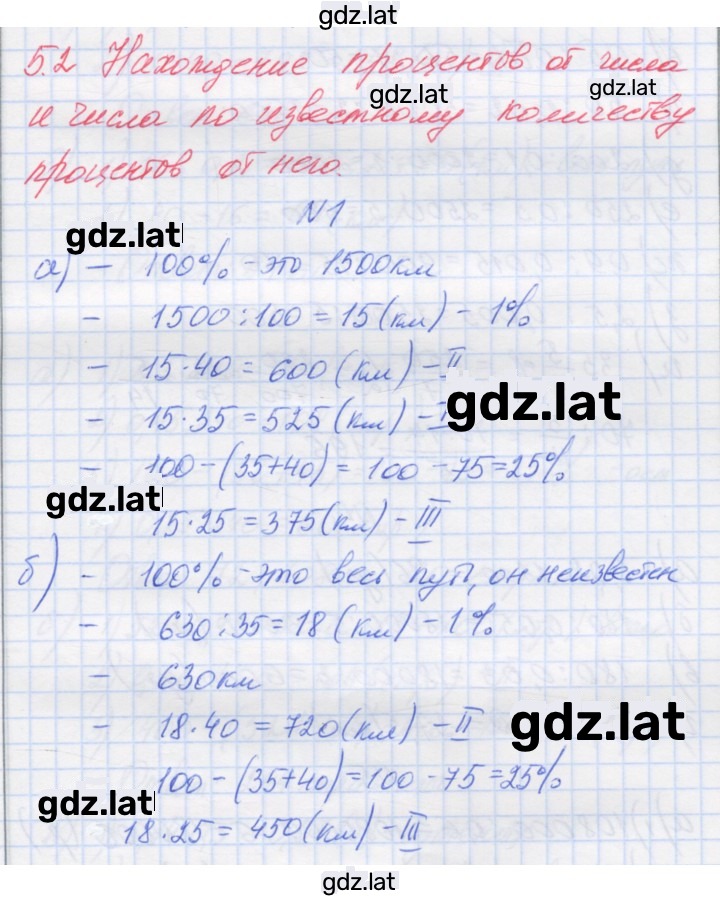 gdz.lat
5.2 Нахождение процентов от числа
gdz.lat gdz.lat
и числа по известному количеству
процентов от него.
N1
gdz.lat
а) – 100% - это 1500 км
– 1500 : 100 = 15 (км) – 1%
– 15 · 40 = 600 (км) – II
– 15 · 35 = 525 (км) –
gdz.lat
– 100 – (35+40) = 100 – 75 = 25%
gdz.lat
15 · 25 = 375 (км) – III
б) – 100% - это весь путь, он неизвестен
– 630 : 35 = 18 (км) – 1%
– 630 км
– 18 · 40 = 720 (км) – II
gdz.lat
100 – (35+40) = 100 – 75 = 25%
gdz.lat
18 · 25 = 450 (км) – III
gdz.lat